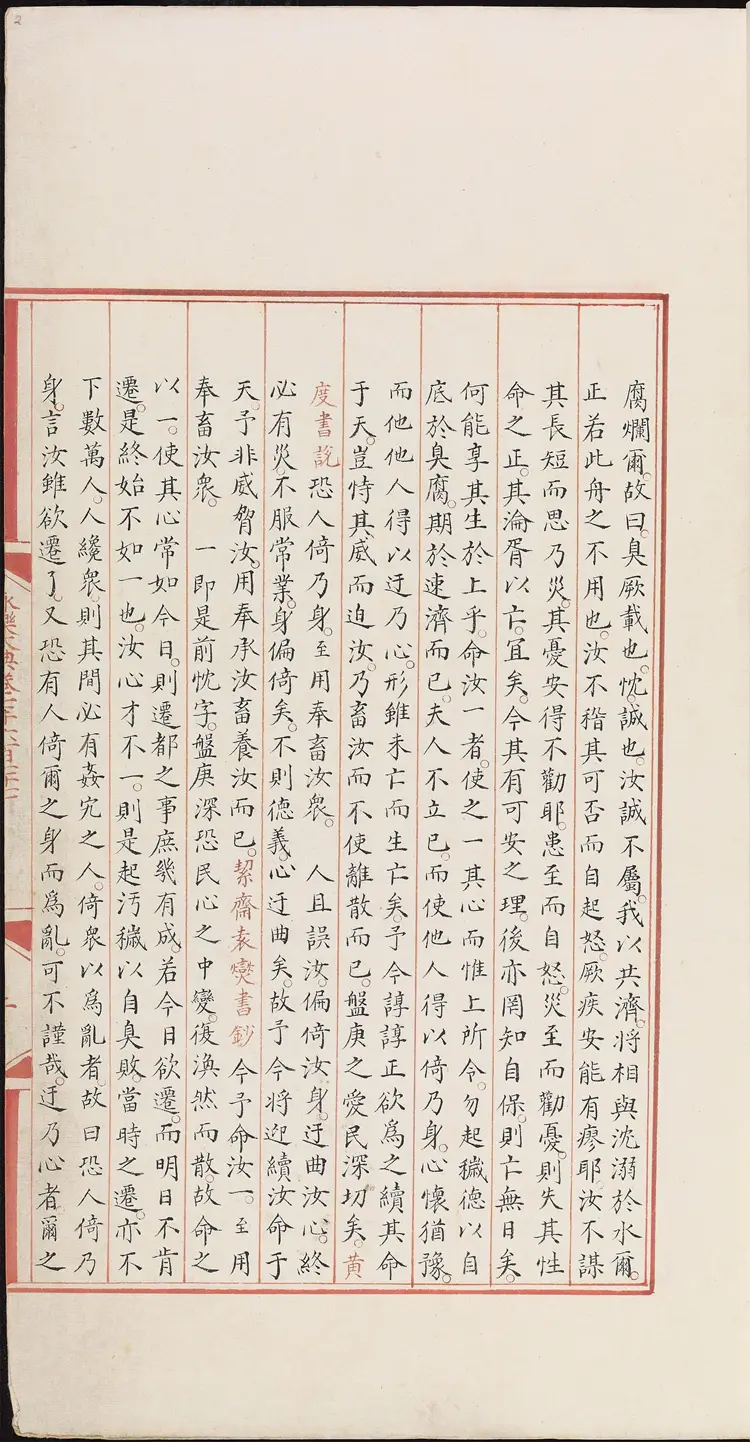 腐爛爾。故曰。臭厥載也。忱誠也。汝誠不屬。我以共濟。將相與沈溺於水爾。
正若此舟之不用也。汝不稽其可否而自起怒。厥疾安能有瘳耶。汝不謀
其長短而思乃災。其憂安得不勸耶。患至而自怒。災至而勸憂。則失其性
命之正。其淪胥以亡。宜矣。今其有可安之理。後亦罔知自保。則亡無日矣。
何能享其生於上乎。命汝一者。使之一其心而惟上所令。勿起穢德以自
底於臭腐。期於速濟而已。夫人不立已。而使他人得以倚乃身。心懷猶豫。
而他他人得以迂乃心。形雖未亡而生亡矣。予今諄諄正欲爲之續其命
于天。豈恃其威而迫汝。乃畜汝而不使離散而已。盤庚之愛民深切矣。黄
度書說恐人倚乃身。至用奉畜汝衆。　人且誤汝。偏倚汝身。迂曲汝心。終
必有災。不服常業。身偏倚矣。不則德義。心迂曲矣。故予今將迎續汝命于
天。予非威脅汝。用奉承汝畜養汝而已。絜齋袁燮書鈔　今予命汝一。至用
奉畜汝衆。　一即是前忱字。盤庚深恐民心之中變。復渙然而散。故命之
以一。使其心常如今日。則遷都之事庶幾有成。若今日欲遷。而明日不肯
遷。是終始不如一也。汝心才不一。則是起汚穢以自臭敗。當時之遷。亦不
下數萬人。人纔衆。則其間必有姦宄之人。倚衆以爲亂者。故曰恐人倚乃
身。言汝雖欲遷了。又恐有人倚爾之身而爲亂。可不謹哉。迂乃心者。爾之